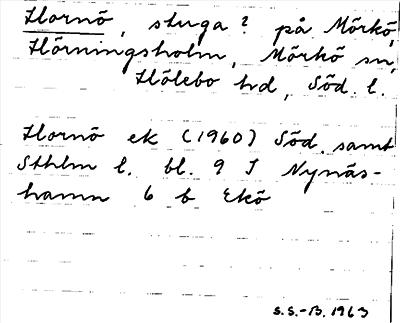 Hornö, stuga? på Mörkö,
Hörningsholm, Mörkö sn,
Hölebo hd, Söd. l.
Hornö ek (1960) Söd. samt
Sthlm l. bl. 9 I Nynäs-
hamn 6 b Ekö
S.S.-B. 1963